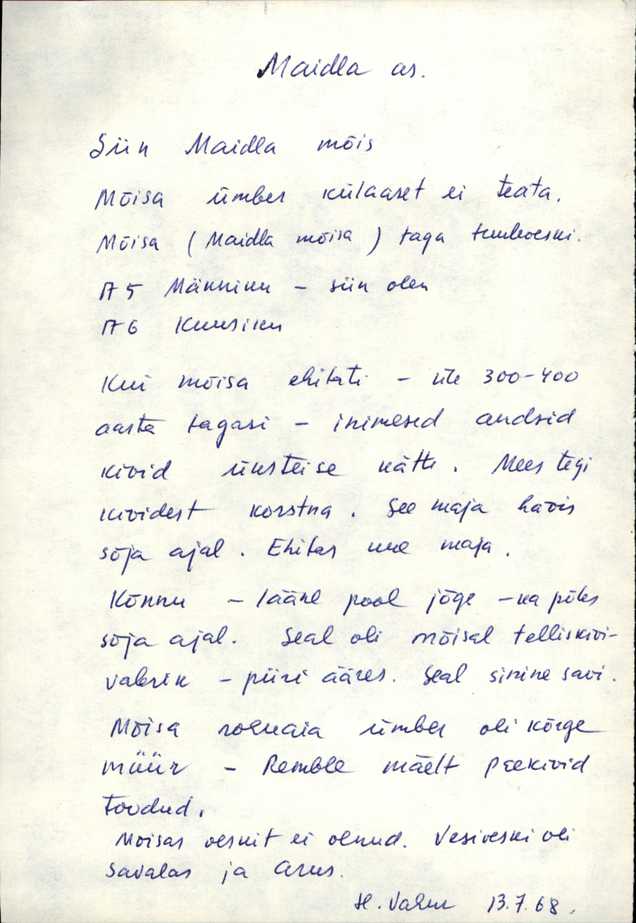 Maidla as.
Siin Maidla mõis
Mõisa ümber külaaset ei teata.
Mõisa (Maidla mõisa) taga tuuleveski.
A5 Männiku – siin olen
A6 Kuusiku
Kui mõisa ehitati – üle 300-400
aasta tagasi – inimesed andsid
kivid üksteise kätte. Mees tegi
kividest korstna. See maja hävis
sõja ajal. Ehitas uue maja.
Kõnnu – lääne pool jõge – ka põles
sõja ajal. Seal oli mõisal telliskivi-
vabrik – piiri ääres. Seal sinine savi.
Mõisa rohuaia ümber oli kõrge
müür – Remble mäelt paekivid
toodud.
Mõisas veskit ei olnud. Vesiveski oli
Savalas ja Arus.
13.7.68.